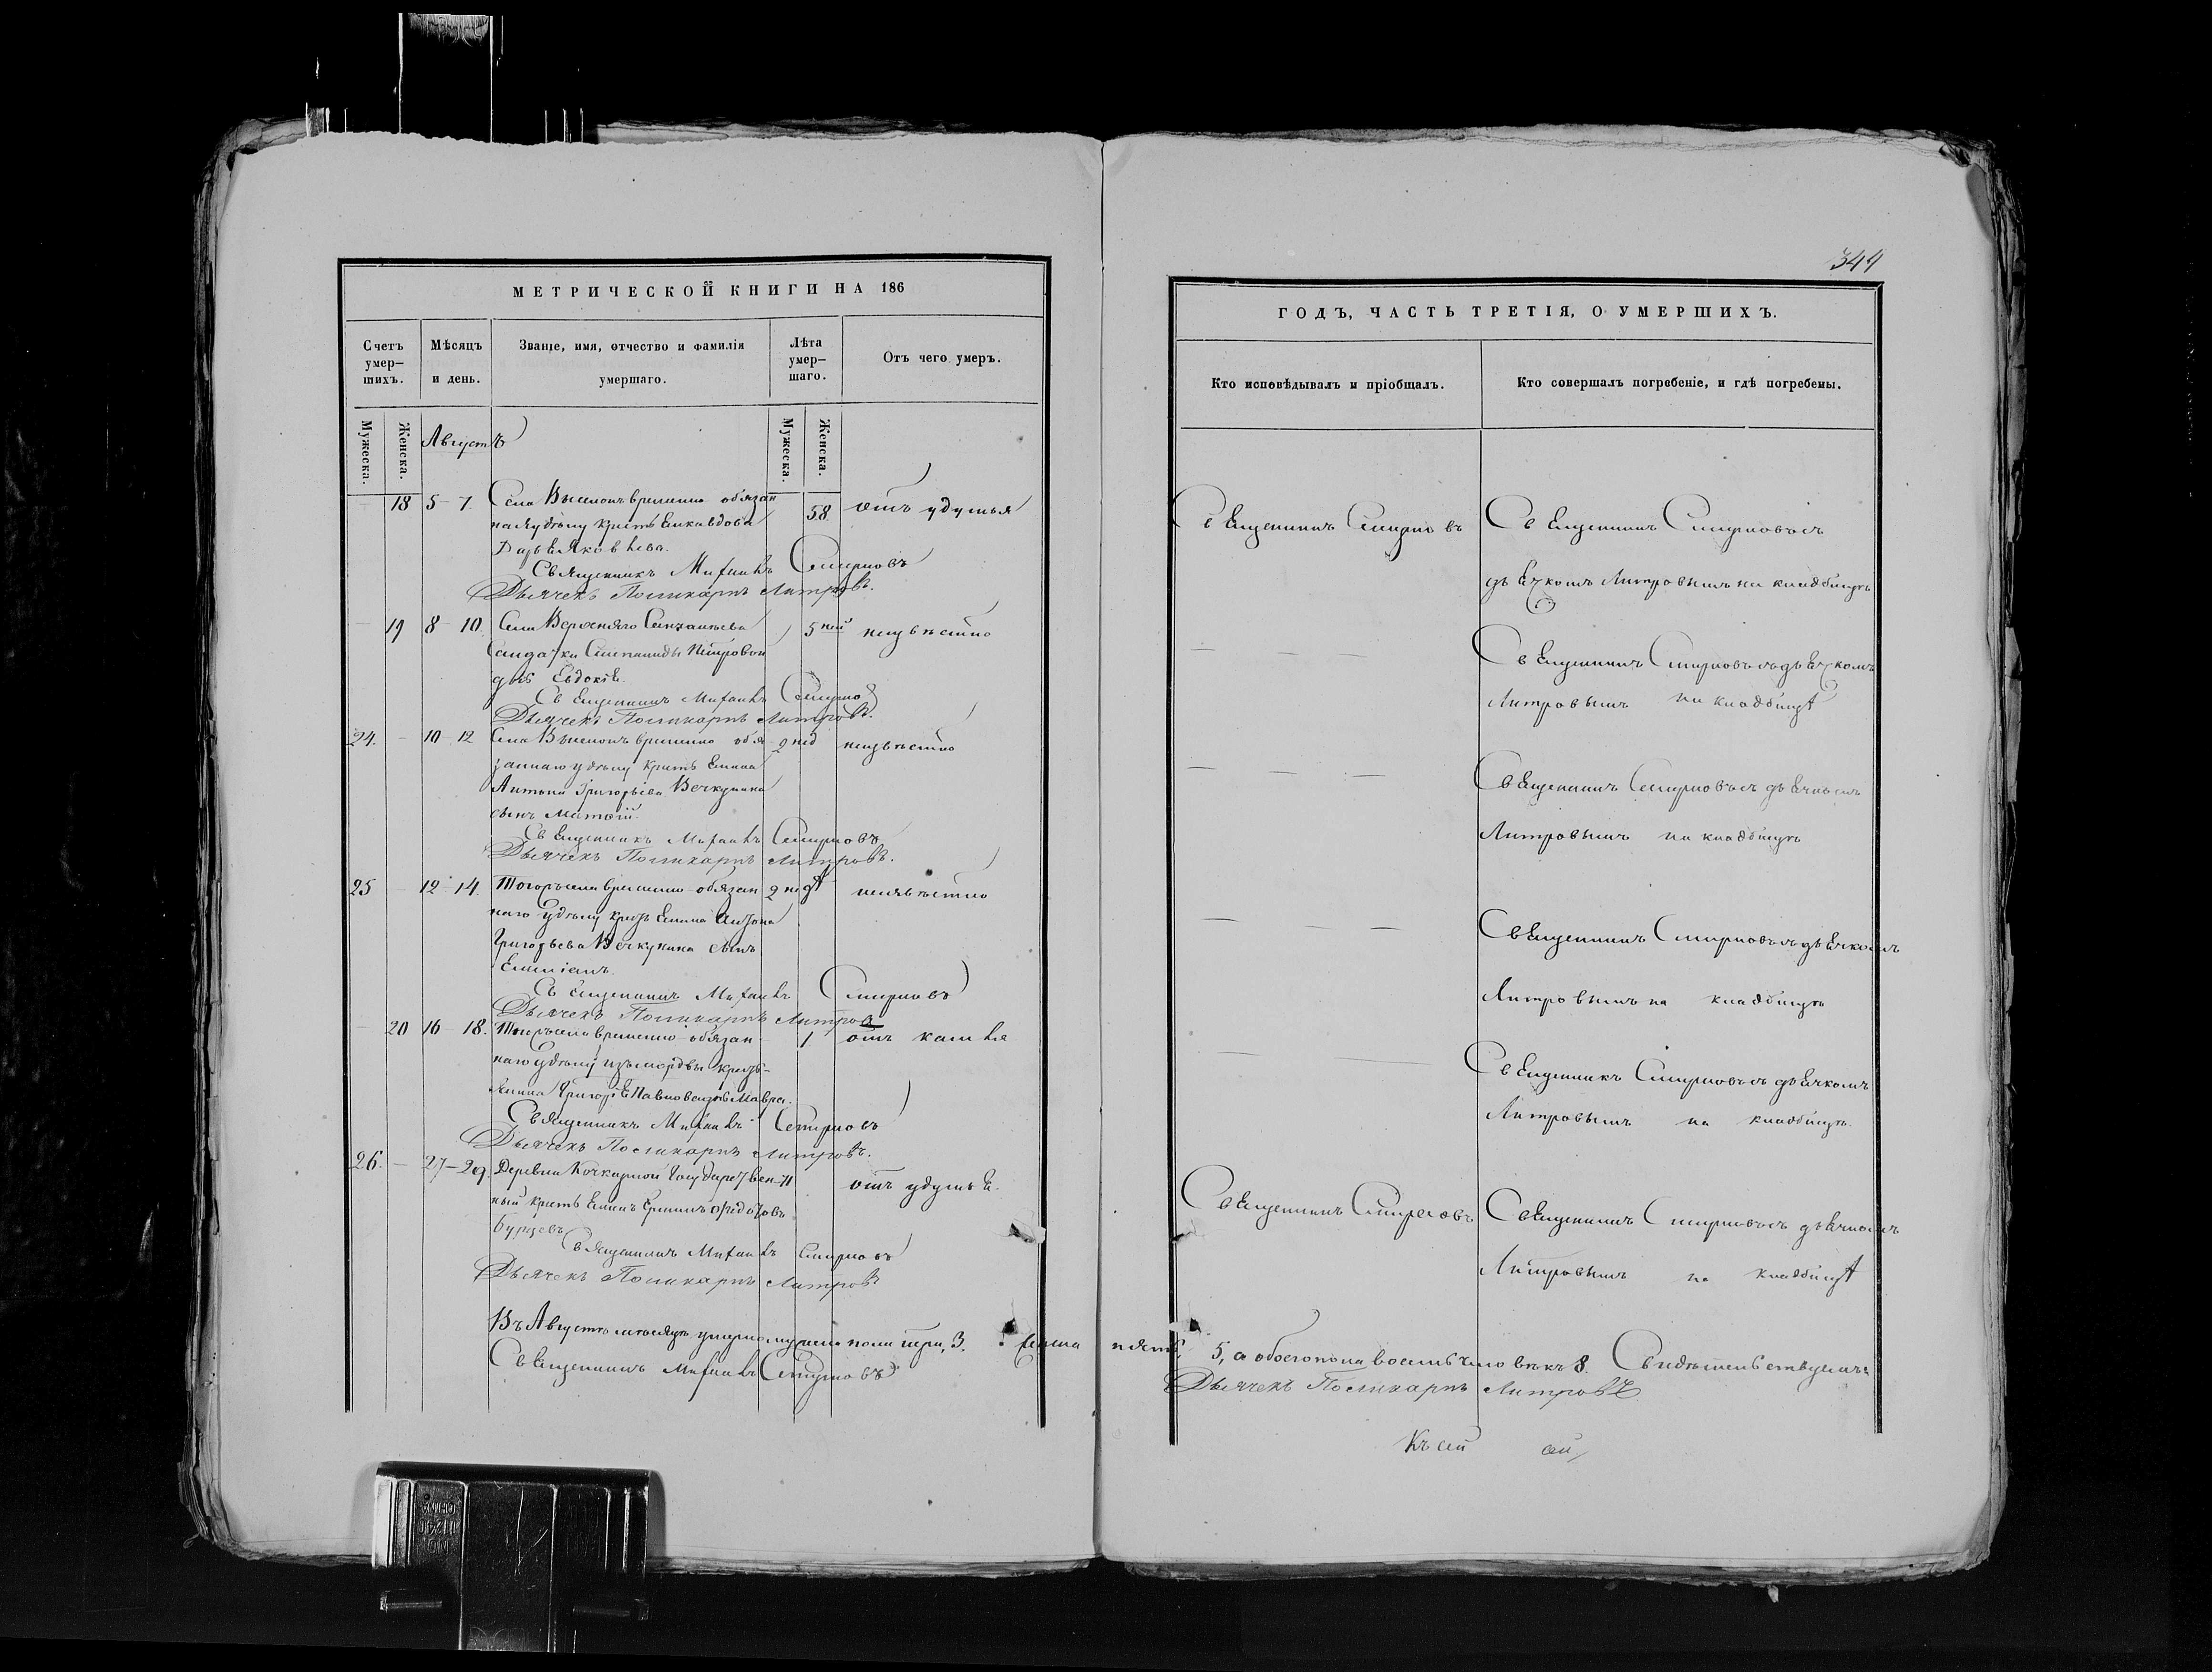 344
МЕТРИЧЕСКОЙ КНИГИ НА 186
Счетъ умер-шихъ.
Мѣсяцъ и день.
Званіе, имя, отчество и фамилія умершаго.
Лѣта умер-шаго.
Отъ чего умеръ.
Мужеска.
Женска.
Мужеска.
Женска.
Августъ
18 5 - 7. Села временно обязан 58 отъ удушья
на Удѣлу вдова
Дарья Яковлева.
Священникъ Михаилъ Смирновъ
Дьячекъ Поликарпъ Литровъ.
19 8 - 10. Села Верхняго 5 неизвѣстно
солдатки Степаниды Петровой
дочь Евдокія.
Священникъ Михаилъ Смирнов
Дьячекъ Поликарпъ Литровъ.
24. - 10 12 Села временно обя 2 нед неизвѣстно
заннаго Удѣлу
Антона Григорьева Вечкунина
сынъ
Священникъ Михаилъ Смирновъ
Дьячекъ Поликарпъ Литровъ.
25 12 - 14. Тогоже села временно обязан 2 недѣ неизвѣстно
наго Удѣлу Антона
Григорьева Вечкунина сынъ
Священникъ Михаилъ Смирновъ
Дьячекъ Поликарпъ Литров
20 16 18. Тогоже села временно обязан 1 отъ кашля
наго Удѣлу изъ мордвы кресть-
янина Григорія Павлова дочь Мавра.
Священникъ Михаилъ Смирновъ
Дьячекъ Поликарпъ Литровъ.
26. - 27 - 29 Деревни Государствен отъ удушья.
ный
Священникъ Михаилъ Смирновъ
Дьячекъ Поликарпъ Литровъ
Въ Августѣ мѣсяцѣ умерло мужеска пола три, 3.
Священникъ Михаилъ Смирновъ
ГОДЪ, ЧАСТЬ ТРЕТІЯ, О УМЕРШИХЪ.
Кто исповѣдывалъ и пріобщалъ.
Кто совершалъ погребеніе, и гдѣ погребены.
Священникъ Смирновъ Священникъ Смирновъ съ
дьячкомъ Литровымъ на кладбищѣ
Священникъ Смирновъ съ дьячкомъ
Литровымъ на кладбищѣ
Священникъ Смирновъ съ дьячкомъ
Литровымъ на кладбищѣ
Священникъ Смирновъ съ дьячкомъ
Литровымъ на кладбищѣ
Священникъ Смирновъ съ дьячкомъ
Литровымъ на кладбищѣ.
Священникъ Смирновъ Священникъ Смирновъ съ дьячкомъ
Литровымъ на кладбищѣ
пять 5, а обоего пола восемь человѣкъ 8.
Дьячекъ Поликарпъ Литровъ
Къ сей